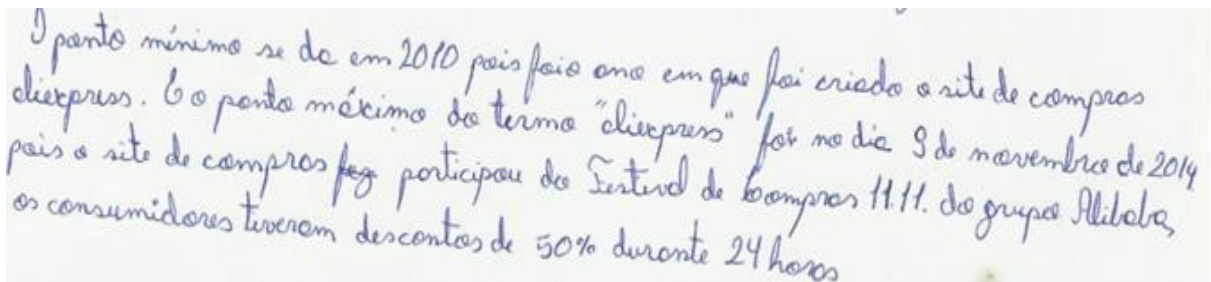 O ponto mínimo se da em 2010 pois foi o ano em que foi criado o site de compras
aliexpress. E o ponto máximo do termo "aliexpress" foi no dia 9 de novembro de 2014
pois o site de compras fez participou do Festival de Compras 11.11. do grupo Alibaba,
os consumidores tiveram descontos de 50% durante 24 horas